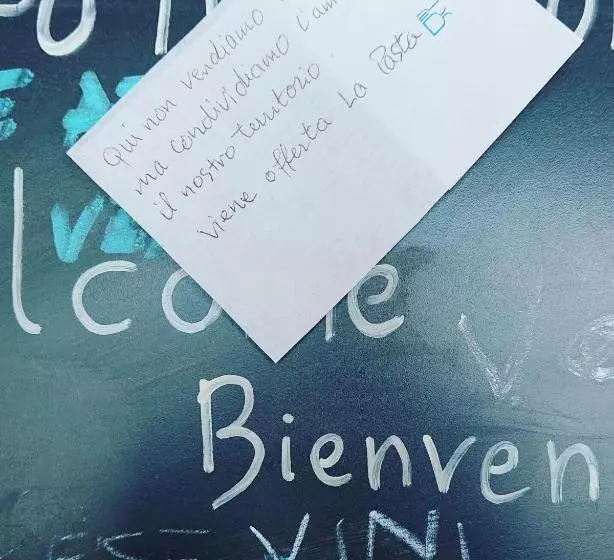 Qui non vendiamo
ma condividiamo l'am
il nostro territorio.
viene offerta La Pasta
VE
lcome
Bienven
VINI